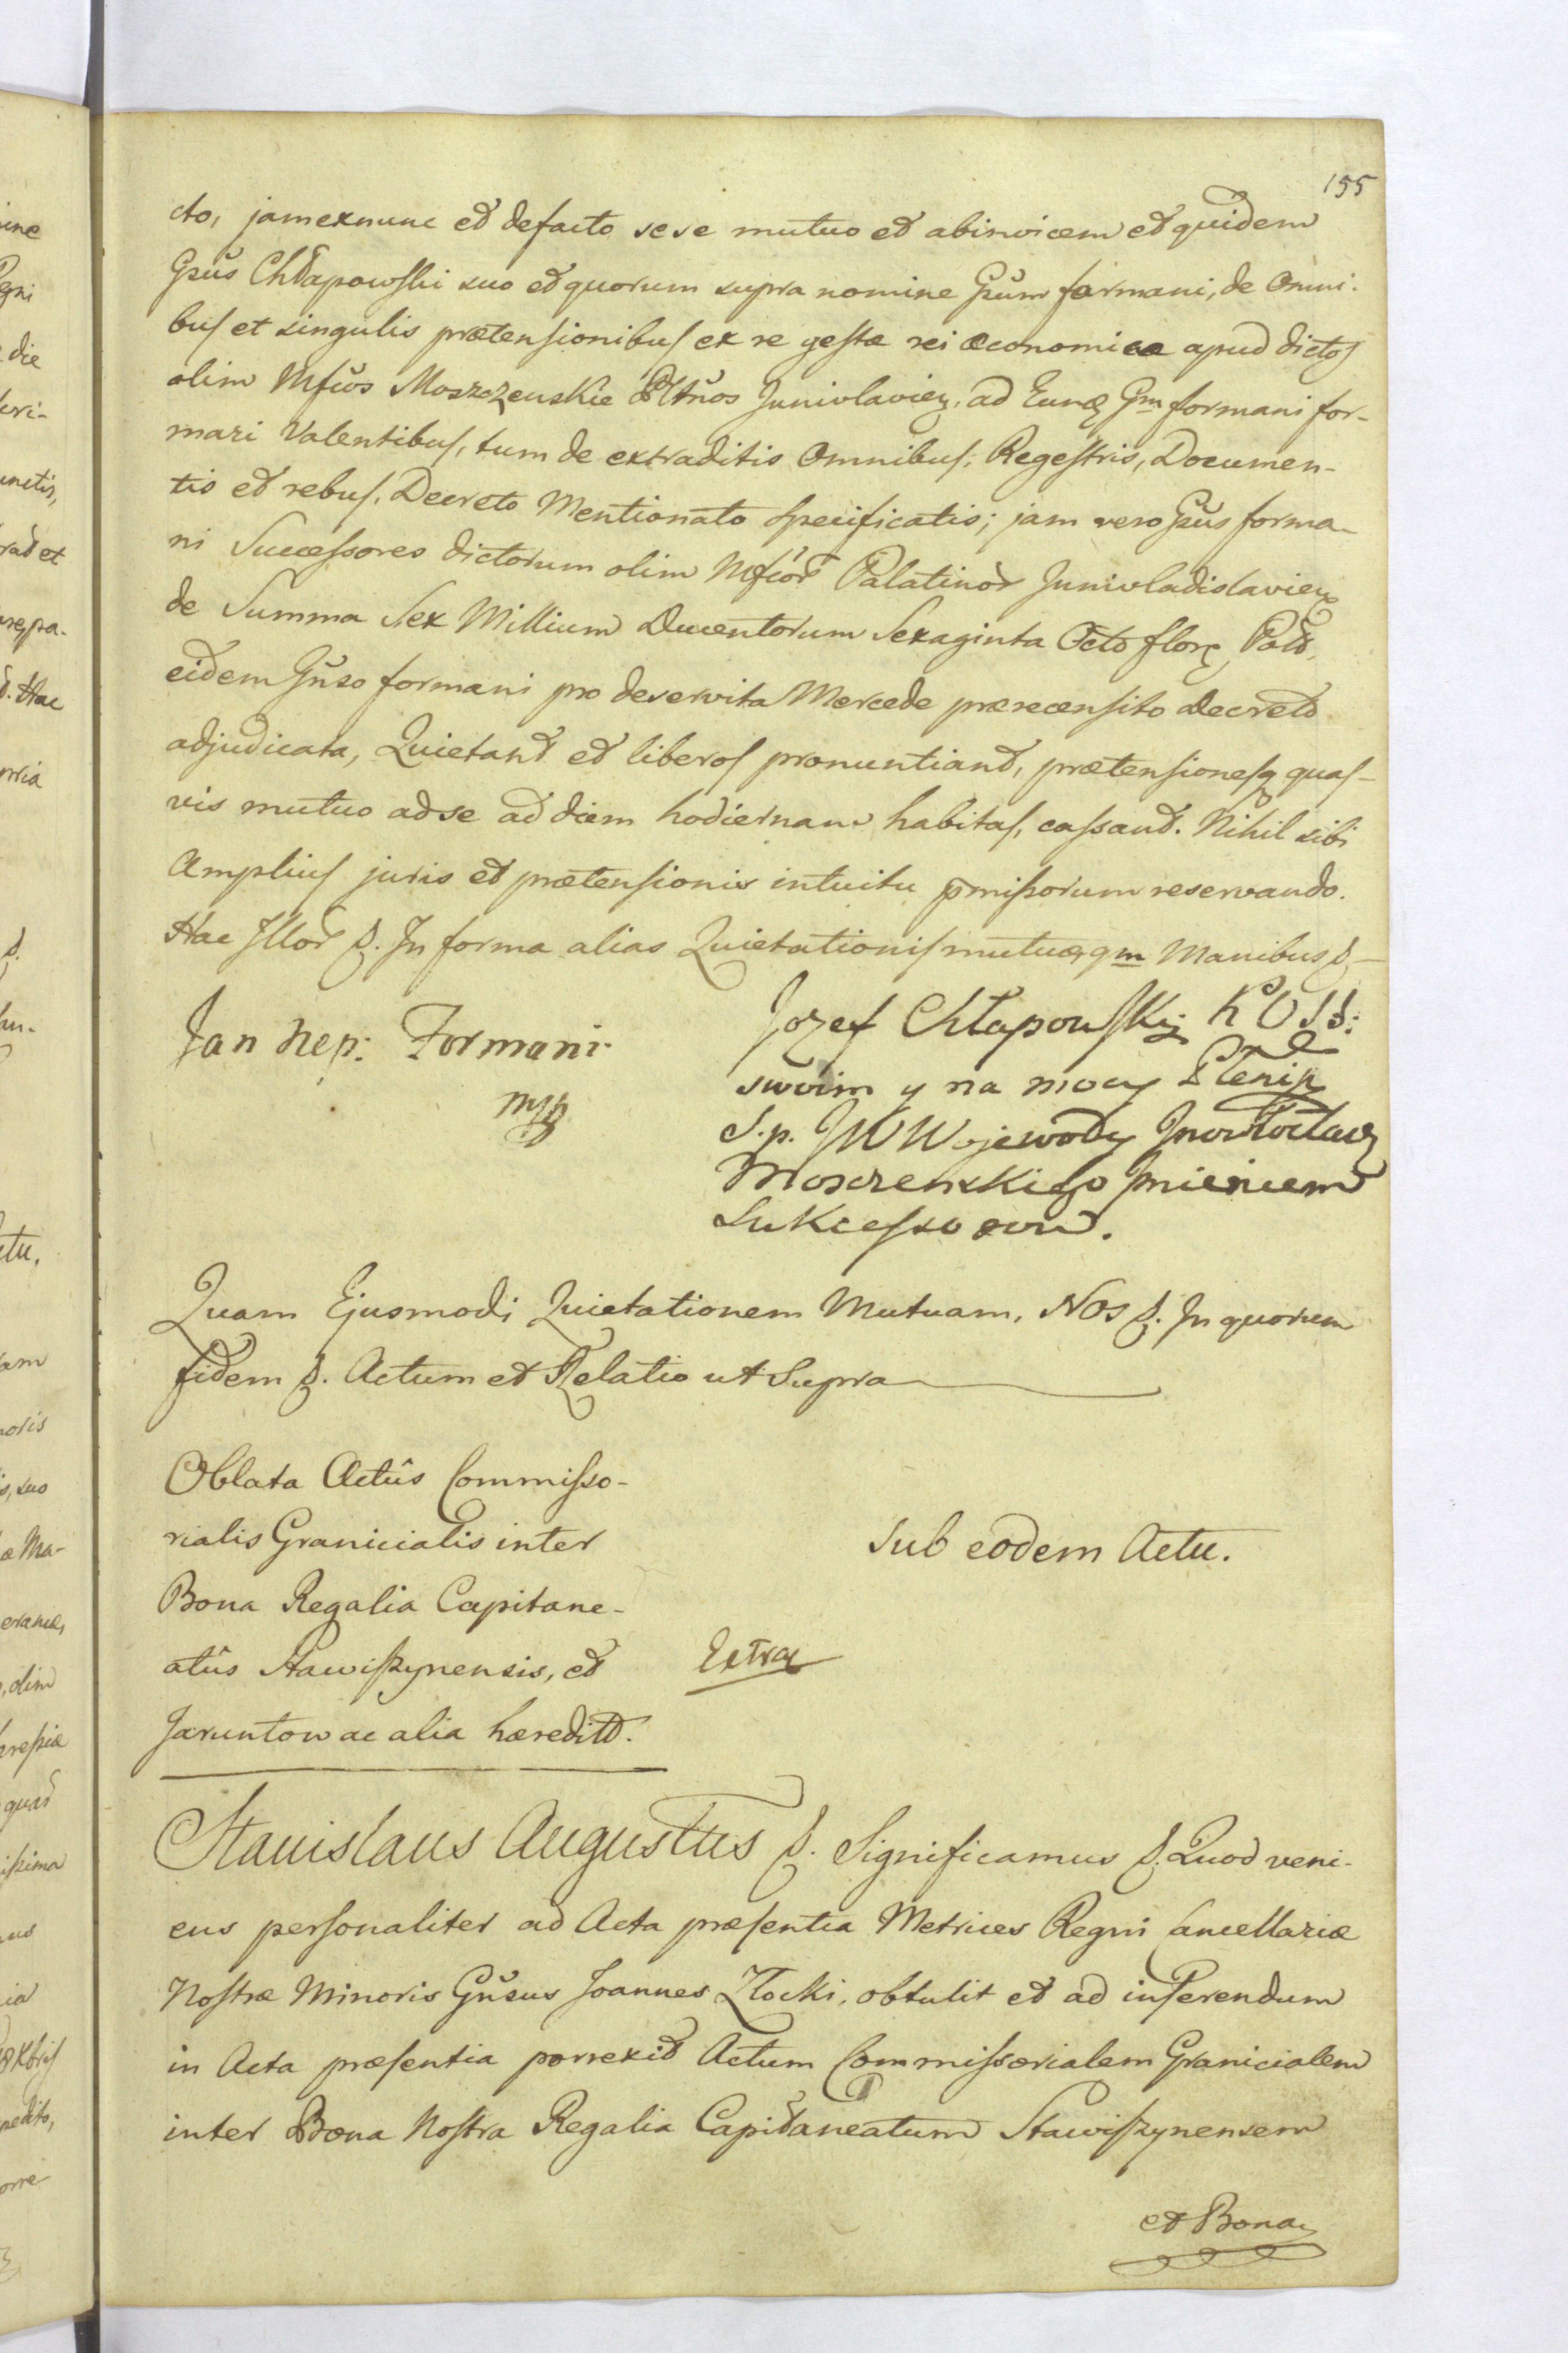 155
cto, jamexnunc et defacto sese mutuo et abinvicem et quidem
Gsūs Chłapowski suo et quorum supra nomine Gsūm formani, de Omni-
bus et singulis prætensionibus ex re gestæ rei œconomicæ apud dictos
olim Mfcos Moszczenskie Junivlavien. ad Eunq Gm formani for-
mari Valentibus, tum de extraditis Omnibus, Regestris, Documen-
tis et rebus, Decreto Mentionato specificatis; jam vero Gsūs forma-
ni Successores dictorum olim Mfcor Palatinor Junivladislavien
de Summa Sex Millium Ducentorum Sexaginta Octo flore, Pold,
eidem Gñso formani pro deservita Mercede præcensito Decreto
adjudicata, Quietant et liberos pronuntiant, prætensionesq quas-
vis mutuo adse ad diem hodiernam habitas, cassant. Nihil sibi
Amplius juris et prætensionis intuitu pmissorum reservando.
Hac Illor S. In forma alias Quietationis mutuæ qm Manibus S.
Jan Nep: Formani
mp
Jozef Chłapowski K
swoim y na mocy Plenip
S.p. JW Wojewody Inowrocław
Moszczenskiego Imieniem
Sukcessorow.
Quam Ejusmodi Quietationem Mutuam, Nos S. In quorum
fidem S. Actum et Relatio ut Supra
Oblata Actûs Commisso-
rialis Granicialis inter
Bona Regalia Capitane-
atûs Stawiszynensis, et
Jaruntow ac alia hæredit.
Sub eodem Actu.
Extrax
Stanislaus Augustus S. Significamus S. Quod veni-
ens personaliter ad Acta præsentia Metrices Regni Cancellariæ
Nostræ Minoris Gñsus Joannes Złocki, obtulit et ad inserendum
in Acta præsentia porrexit Actum Commissorialem Granicialem
inter Bona Nostra Regalia Capitaneatum Stawiszynensem
et Bona